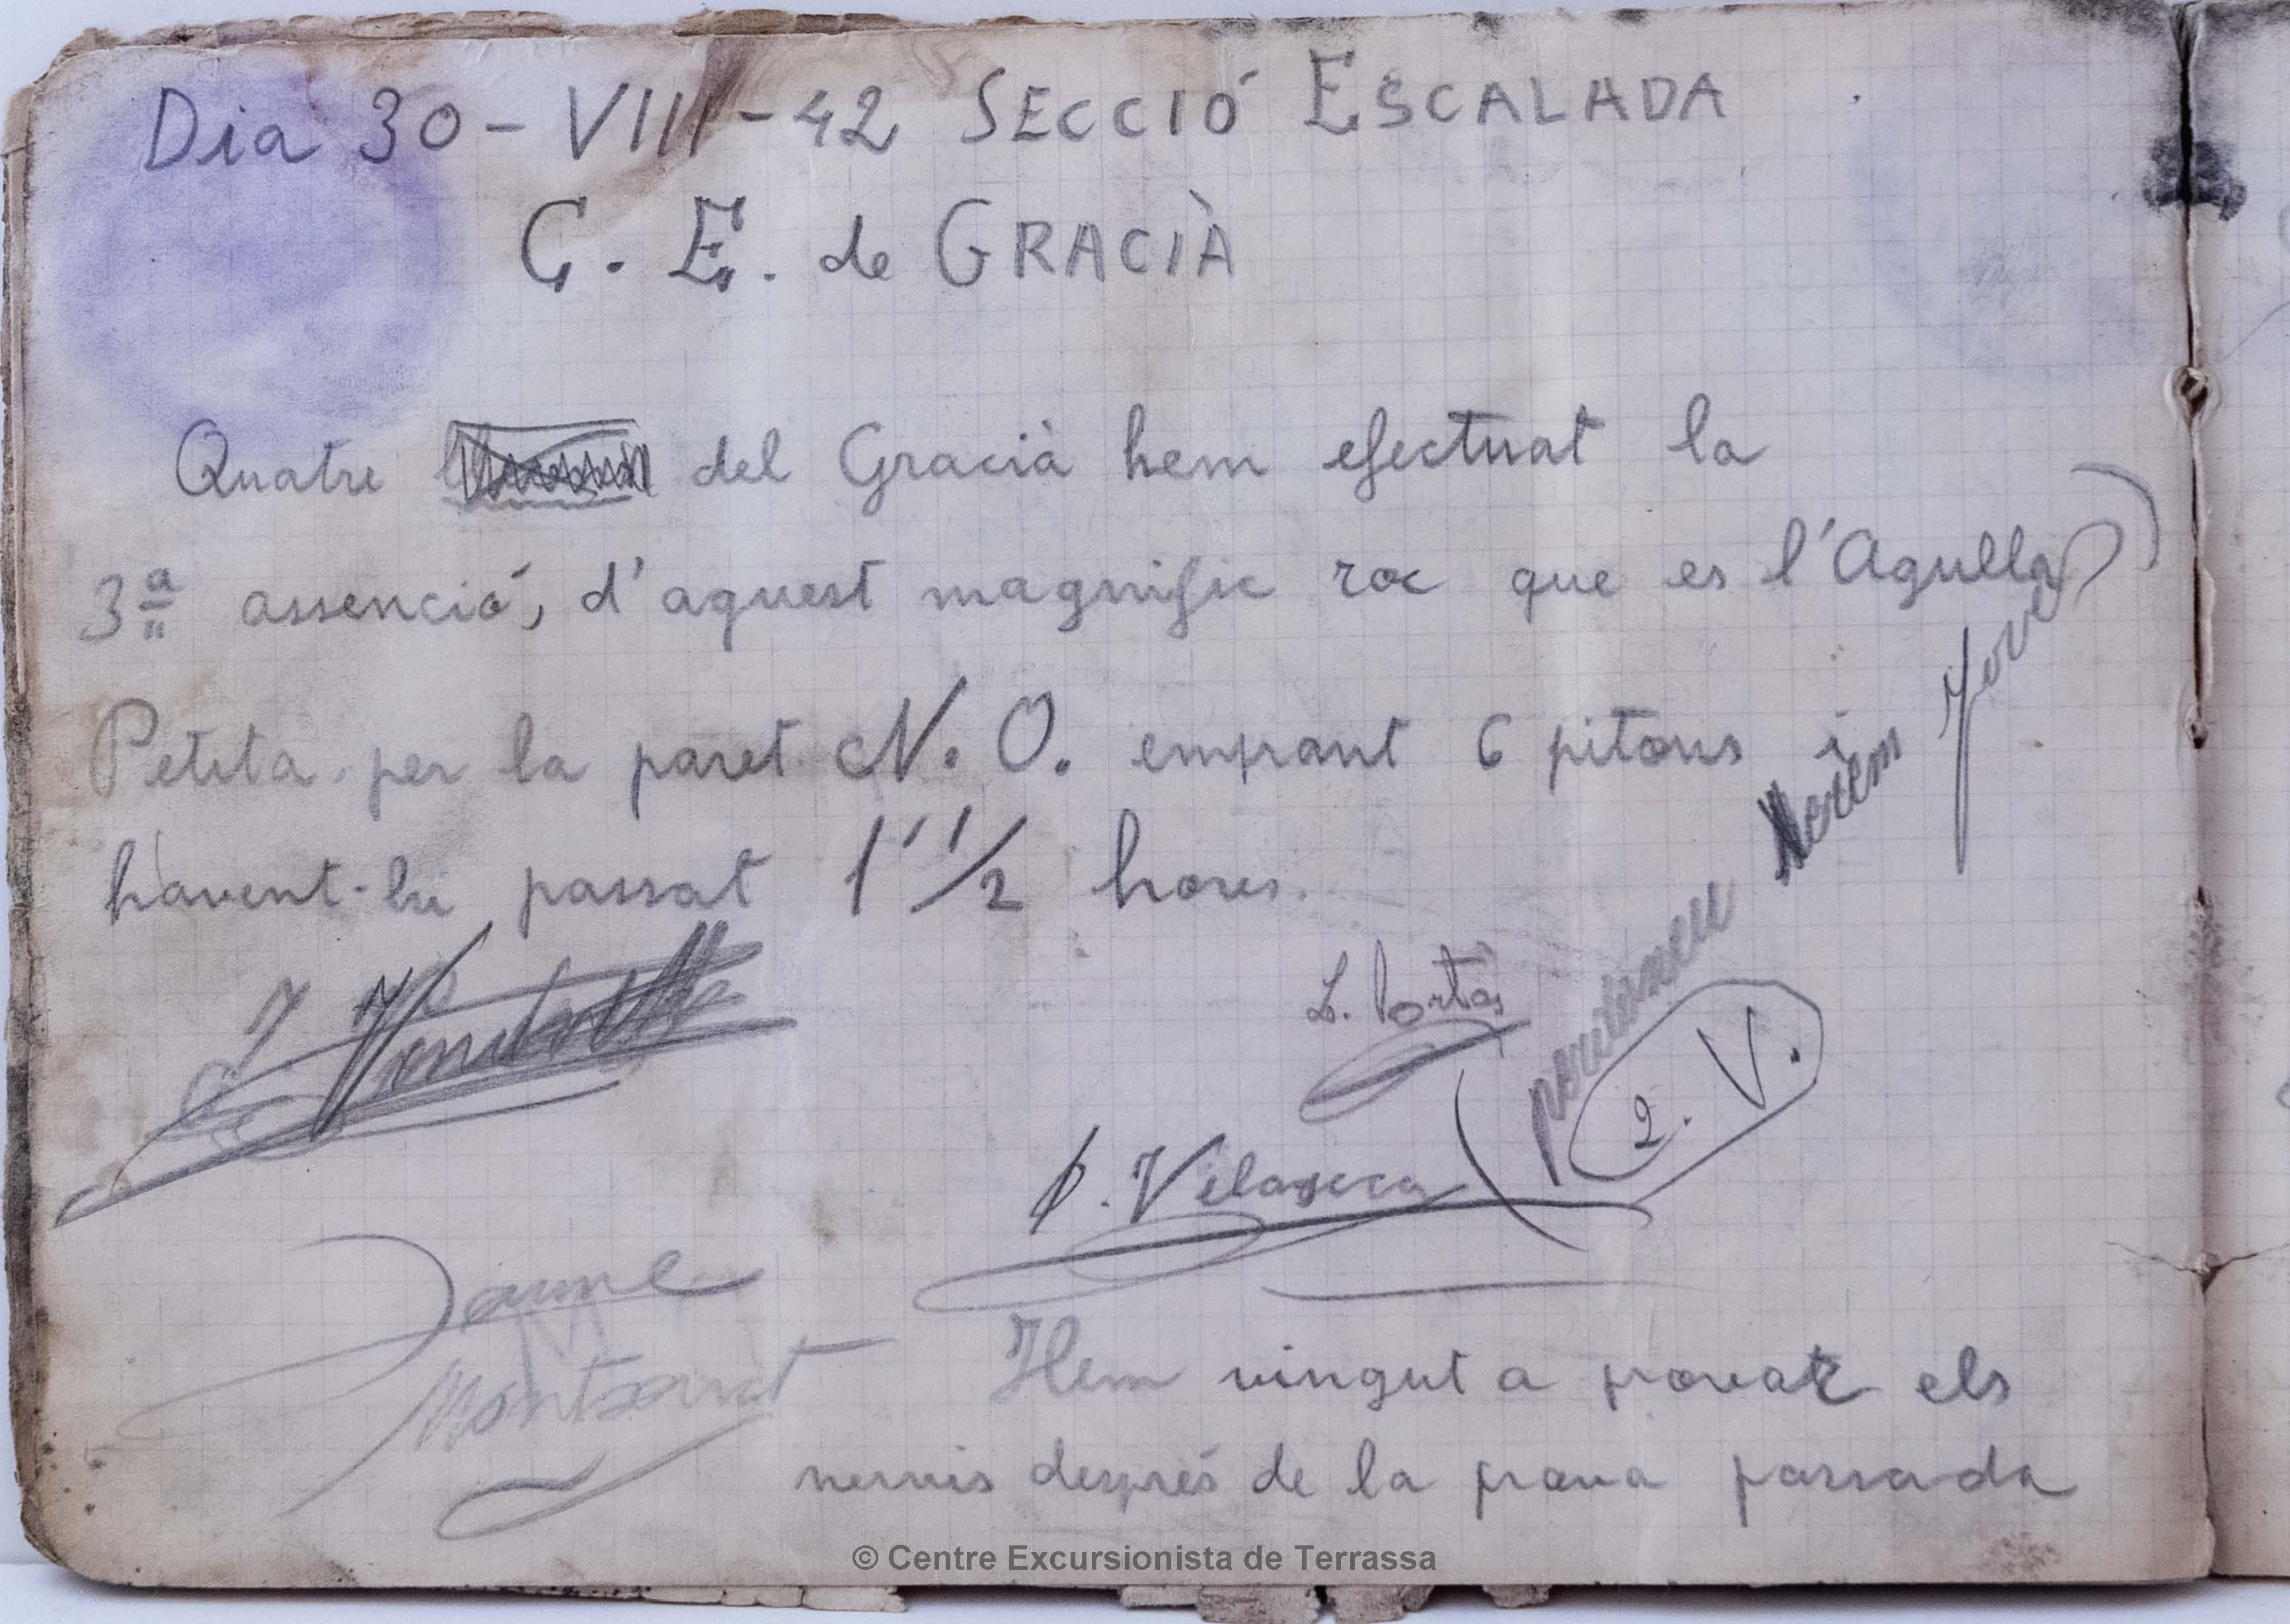 Dia 30-VIII-42 SECCIÓ ESCALADA
C. E. de GRACIÀ
Quatre del Gracià hem efectuat la
3ª assenció, d'aquest magnific roc que es l'Agulla
Petita per la paret N. O. emprant 6 pitons i
havent-hi passat 1 1/2 hores.
J
L. Portas
P. Vilaseca
2. V.
Jaume
Montserrat
Hem vingut a provar els
nervis després de la prova passada
© Centre Excursionista de Terrassa